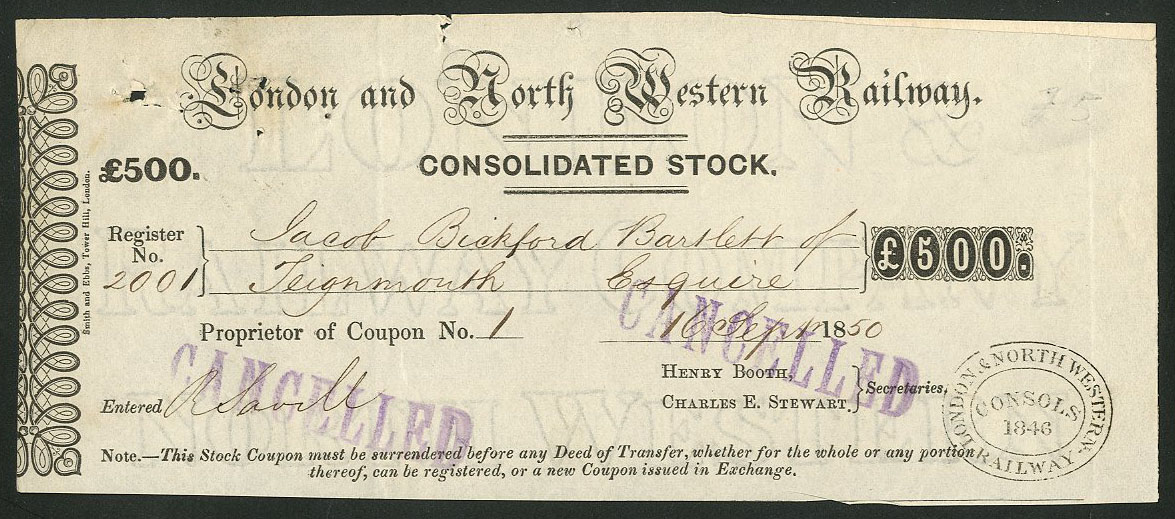 London and North Western Railway.
CONSOLIDATED STOCK.
£500.
Smith and Ebbs, Tower Hill, London.
Register No. 2001
Jacob Bickford Bartlett of
Teignmouth Esquire
£500.
Proprietor of Coupon No. 1
16 Sept 1850
CANCELLED
CANCELLED
HENRY BOOTH,
CHARLES E. STEWART.
Secretaries.
Entered R Savill
LONDON & NORTH WESTERN RAILWAY
CONSOLS
1846
Note.—This Stock Coupon must be surrendered before any Deed of Transfer, whether for the whole or any portion
thereof, can be registered, or a new Coupon issued in Exchange.